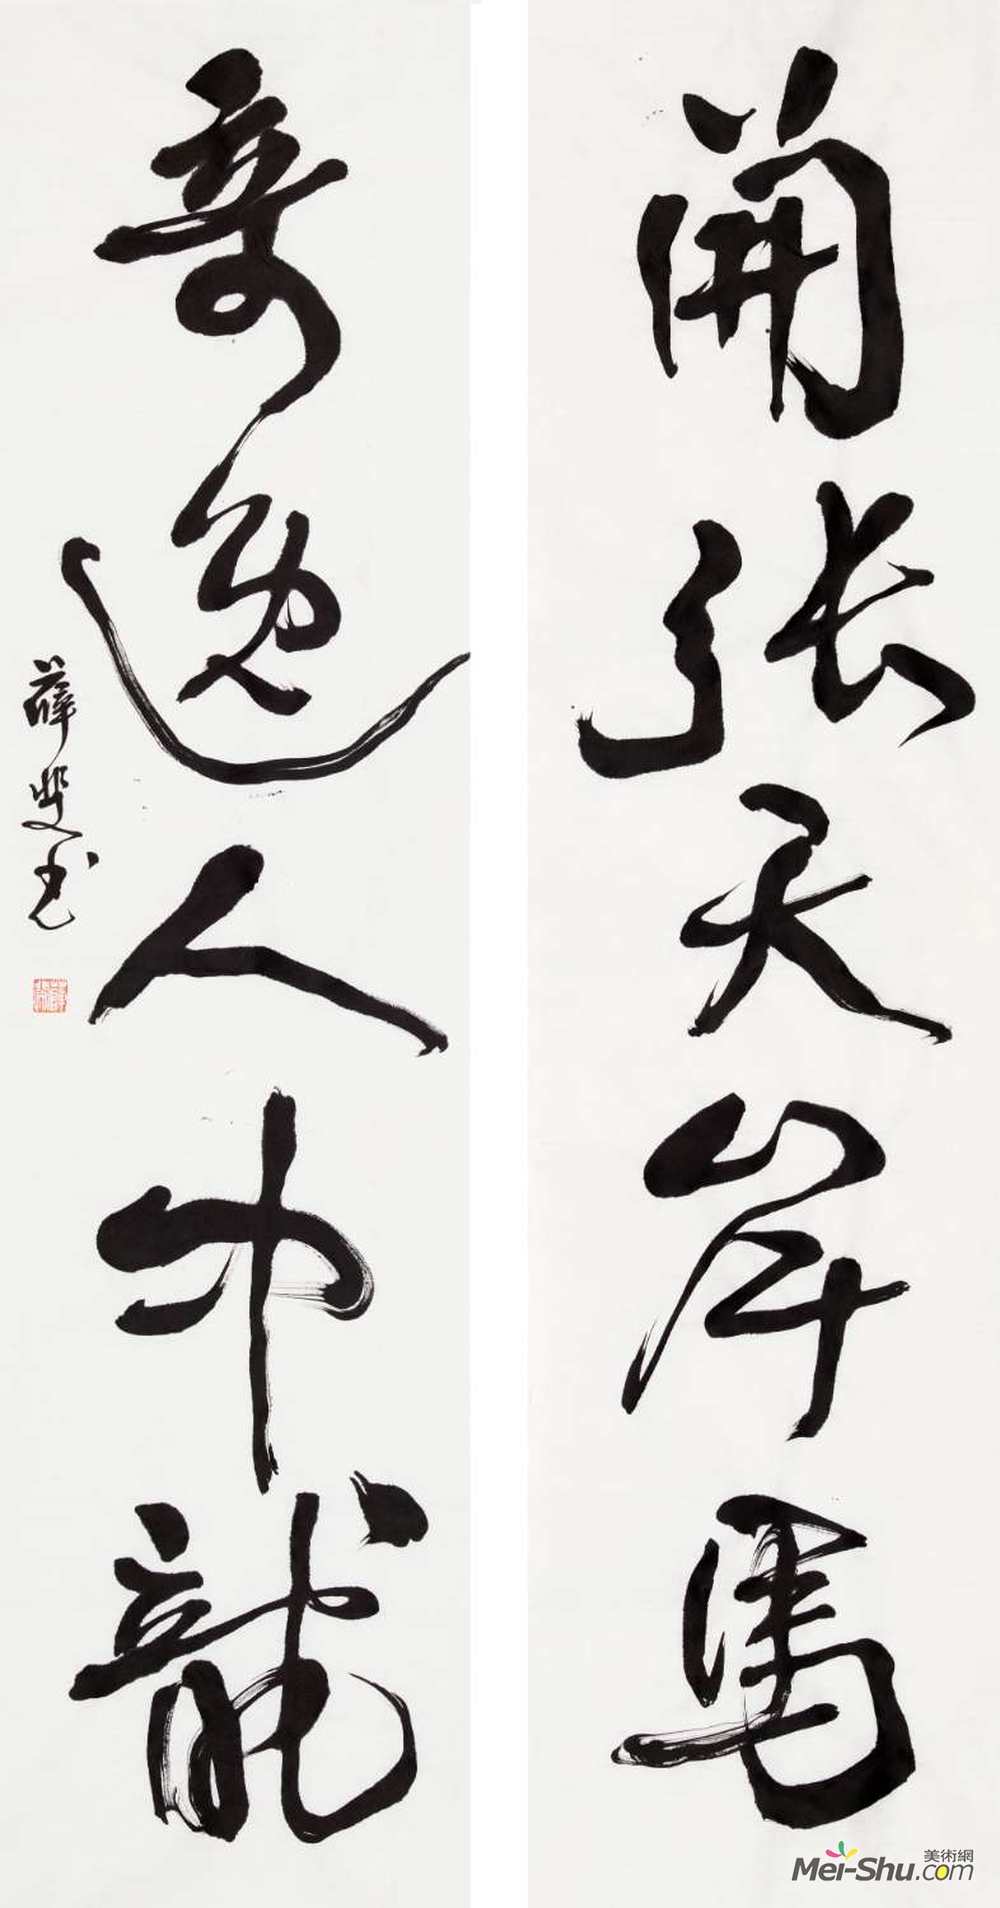 開張天岸馬
奇逸人中龍
薛斐书
美術網
Mei-Shu.com